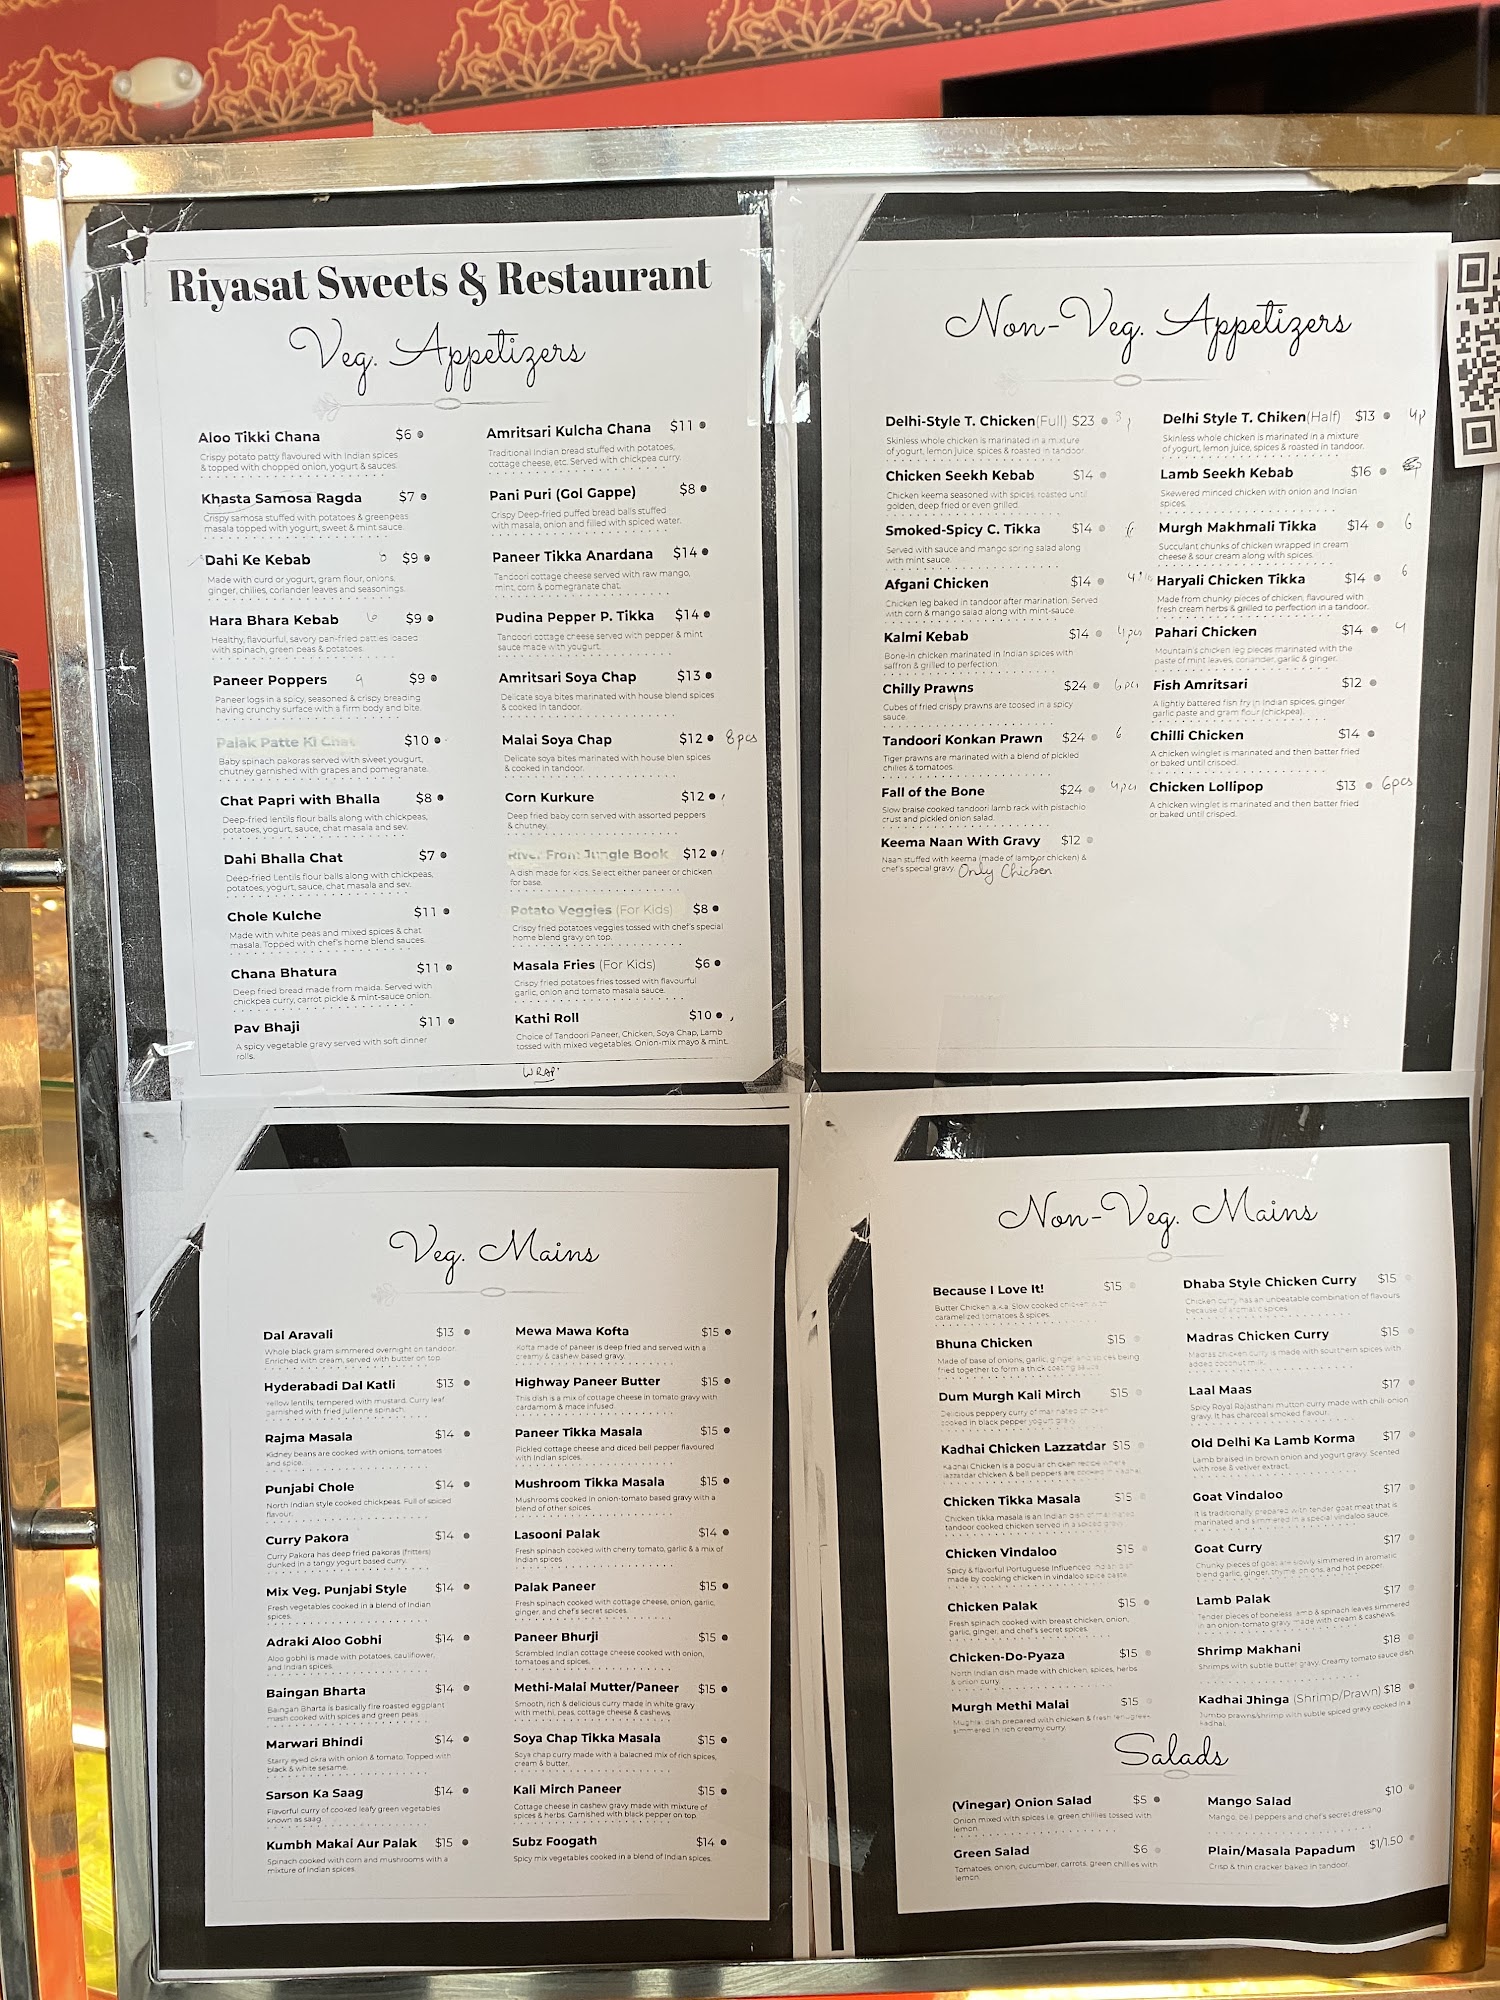 Riyasat Sweets & Restaurant
Veg. Appetizers
Aloo Tikki Chana $6
Crispy potato patty flavoured with Indian spices
& topped with chopped onion, yogurt & sauces.
Khasta Samosa Ragda $7
Crispy samosa stuffed with potatoes & greenpeas
masala topped with yogurt, sweet & mint sauce
Dahi Ke Kebab $9
Made with curd or yogurt, gram flour, onions,
ginger, chilies, coriander leaves and seasonings.
Hara Bhara Kebab 6 $9
Healthy, flavourful, savory pan-fried patties loaded
with spinach, green peas & potatoes.
Paneer Poppers 9 $9
Paneer logs in a spicy, seasoned & crispy breading
having crunchy surface with a firm body and bite.
Palak Patte Ki Chat $10
Baby spinach pakoras served with sweet yougurt,
chutney garnished with grapes and pomegranate.
Chat Papri with Bhalla $8
Deep-fried lentils flour balls along with chickpeas,
potatoes, yogurt, sauce, chat masala and sev.
Dahi Bhalla Chat $7
Deep-fried Lentils flour balls along with chickpeas,
potatoes, yogurt, sauce, chat masala and sev.
Chole Kulche $11
Made with white peas and mixed spices & chat
masala. Topped with chef's home blend sauces.
Chana Bhatura $11
Deep fried bread made from maida. Served with
chickpea curry, carrot pickle & mint-sauce onion.
Pav Bhaji $11
A spicy vegetable gravy served with soft dinner
rolls.
Amritsari Kulcha Chana $11
Traditional Indian bread stuffed with potatoes,
cottage cheese, etc. Served with chickpea curry.
Pani Puri (Gol Gappe) $8
Crispy Deep-fried puffed bread balls stuffed
with masala, onion and filled with spiced water.
Paneer Tikka Anardana $14
Tandoori cottage cheese served with raw mango,
mint, corn & pomegranate chat.
Pudina Pepper P. Tikka $14
Tandoori cottage cheese served with pepper & mint
sauce made with yougurt.
Amritsari Soya Chap $13
Delicate soya bites marinated with house blend spices
& cooked in tandoor.
Malai Soya Chap $12 8 pcs
Delicate soya bites marinated with house blen spices
& cooked in tandoor.
Corn Kurkure $12
Deep fried baby corn served with assorted peppers
& chutney.
River Front Jungle Book $12
A dish made for kids. Select either paneer or chicken
for base.
Potato Veggies (For Kids) $8
Crispy fried potatoes veggies tossed with chef's special
home blend gravy on top.
Masala Fries (For Kids) $6
Crispy fried potatoes fries tossed with flavourful
garlic, onion and tomato masala sauce.
Kathi Roll $10
Choice of Tandoori Paneer, Chicken, Soya Chap, Lamb
tossed with mixed vegetables. Onion-mix mayo & mint.
WRAP
Non-Veg. Appetizers
Delhi-Style T. Chicken(Full) $23
Skinless whole chicken is marinated in a mixture
of yogurt, lemon juice, spices & roasted in tandoor
Chicken Seekh Kebab $14
Chicken keema seasoned with spices, roasted until
golden, deep fried or even grilled.
Smoked-Spicy C. Tikka $14 6
Served with sauce and mango spring salad along
with mint sauce.
Afgani Chicken $14
Chicken leg baked in tandoor after marination. Served
with corn & mango salad along with mint-sauce.
Kalmi Kebab $14 4 pcs
Bone-in chicken marinated in Indian spices with
saffron & grilled to perfection
Chilly Prawns $24 6 pcs
Cubes of fried crispy prawns are toosed in a spicy
sauce.
Tandoori Konkan Prawn $24 6
Tiger prawns are marinated with a blend of pickled
chilies & tomatoes.
Fall of the Bone $24 4 pcs
Slow braise cooked tandoori lamb rack with pistachio
crust and pickled onion salad.
Keema Naan With Gravy $12
Naan stuffed with keema (made of lamb or chicken) &
chef's special gravy. Only Chicken
Delhi Style T. Chiken(Half) $13 4p
Skinless whole chicken is marinated in a mixture
of yogurt, lemon juice, spices & roasted in tandoor.
Lamb Seekh Kebab $16
Skewered minced chicken with onion and Indian
spices.
Murgh Makhmali Tikka $14 6
Succulant chunks of chicken wrapped in cream
cheese & sour cream along with spices.
Haryali Chicken Tikka $14 6
Made from chunky pieces of chicken, flavoured with
fresh cream herbs & grilled to perfection in a tandoor.
Pahari Chicken $14 4
Mountain's chicken leg pieces marinated with the
paste of mint leaves, coriander, garlic & ginger.
Fish Amritsari $12
A lightly battered fish fry in Indian spices, ginger
garlic paste and gram flour (chickpea).
Chilli Chicken $14
A chicken winglet is marinated and then batter fried
or baked until crisped.
Chicken Lollipop $13 6pcs
A chicken winglet is marinated and then batter fried
or baked until crisped.
Veg. Mains
Dal Aravali $13
Whole black gram simmered overnight on tandoor.
Enriched with cream, served with butter on top.
Hyderabadi Dal Katli $13
Yellow lentils, tempered with mustard. Curry leaf
garnished with fried julienne spinach.
Rajma Masala $14
Kidney beans are cooked with onions, tomatoes
and spice.
Punjabi Chole $14
North Indian style cooked chickpeas. Full of spiced
flavour.
Curry Pakora $14
Curry Pakora has deep fried pakoras (fritters)
dunked in a tangy yogurt based curry.
Mix Veg. Punjabi Style $14
Fresh vegetables cooked in a blend of Indian
spices.
Adraki Aloo Gobhi $14
Aloo gobhi is made with potatoes, cauliflower,
and Indian spices.
Baingan Bharta $14
Baingan Bharta is basically fire roasted eggplant
mash cooked with spices and green peas.
Marwari Bhindi $14
Starry eyed okra with onion & tomato. Topped with
black & white sesame.
Sarson Ka Saag $14
Flavorful curry of cooked leafy green vegetables
known as saag.
Kumbh Makai Aur Palak $15
Spinach cooked with corn and mushrooms with a
mixture of Indian spices.
Mewa Mawa Kofta $15
Kofta made of paneer is deep fried and served with a
creamy & cashew based gravy.
Highway Paneer Butter $15
This dish is a mix of cottage cheese in tomato gravy with
cardamom & mace infused.
Paneer Tikka Masala $15
Pickled cottage cheese and diced bell pepper flavoured
with Indian spices.
Mushroom Tikka Masala $15
Mushrooms cooked in onion-tomato based gravy with a
blend of other spices.
Lasooni Palak $14
Fresh spinach cooked with cherry tomato, garlic & a mix of
Indian spices
Palak Paneer $15
Fresh spinach cooked with cottage cheese, onion, garlic,
ginger, and chef's secret spices.
Paneer Bhurji $15
Scrambled Indian cottage cheese cooked with onion,
tomatoes and spices.
Methi-Malai Mutter/Paneer $15
Smooth, rich & delicious curry made in white gravy
with methi, peas, cottage cheese & cashews.
Soya Chap Tikka Masala $15
Soya chap curry made with a balacned mix of rich spices,
cream & butter.
Kali Mirch Paneer $15
Cottage cheese in cashew gravy made with mixture of
spices & herbs. Garnished with black pepper on top.
Subz Foogath $14
Spicy mix vegetables cooked in a blend of Indian spices.
Non-Veg. Mains
Because I Love It! $15
Butter Chicken a.k.a. Slow cooked chicken with
caramelized tomatoes & spices.
Bhuna Chicken $15
Made of base of onions, garlic, ginger and spices being
fried together to form a thick coating sauce.
Dum Murgh Kali Mirch $15
Delicious peppery curry of marinated chicken
cooked in black pepper yogurt gravy.
Kadhai Chicken Lazzatdar $15
Kadhai Chicken is a popular chicken recipe where
lazzatdar chicken & bell peppers are cooked in kadhai.
Chicken Tikka Masala $15
Chicken tikka masala is an Indian dish of marinated
tandoor cooked chicken served in a spiced gravy.
Chicken Vindaloo $15
Spicy & flavorful Portuguese influenced Indian dish
made by cooking chicken in vindaloo spice paste.
Chicken Palak $15
Fresh spinach cooked with breast chicken, onion,
garlic, ginger, and chef's secret spices.
Chicken-Do-Pyaza $15
North Indian dish made with chicken, spices, herbs
& onion curry.
Murgh Methi Malai $15
Mughlai dish prepared with chicken & fresh fenugreek
simmered in rich creamy curry.
Dhaba Style Chicken Curry $15
Chicken curry has an unbeatable combination of flavours
because of aromatic spices.
Madras Chicken Curry $15
Madras chicken curry is made with southern spices with
added coconut milk.
Laal Maas $17
Spicy Royal Rajasthani mutton curry made with chili-onion
gravy. It has charcoal smoked flavour.
Old Delhi Ka Lamb Korma $17
Lamb braised in brown onion and yogurt gravy. Scented
with rose & vetiver extract.
Goat Vindaloo $17
It is traditionally prepared with tender goat meat that is
marinated and simmered in a special vindaloo sauce.
Goat Curry $17
Chunky pieces of goat are slowly simmered in aromatic
blend garlic, ginger, thyme, onions, and hot pepper.
Lamb Palak $17
Tender pieces of boneless lamb & spinach leaves simmered
in an onion-tomato gravy made with cream & cashews.
Shrimp Makhani $18
Shrimps with subtle butter gravy. Creamy tomato sauce dish.
Kadhai Jhinga (Shrimp/Prawn) $18
Jumbo prawns/shrimp with subtle spiced gravy cooked in a
kadhai.
Salads
(Vinegar) Onion Salad $5
Onion mixed with spices i.e. green chillies tossed with
lemon.
Green Salad $6
Tomatoes, onion, cucumber, carrots, green chillies with
lemon.
Mango Salad $10
Mango, bell peppers and chef's secret dressing.
Plain/Masala Papadum $1/1.50
Crisp & thin cracker baked in tandoor.